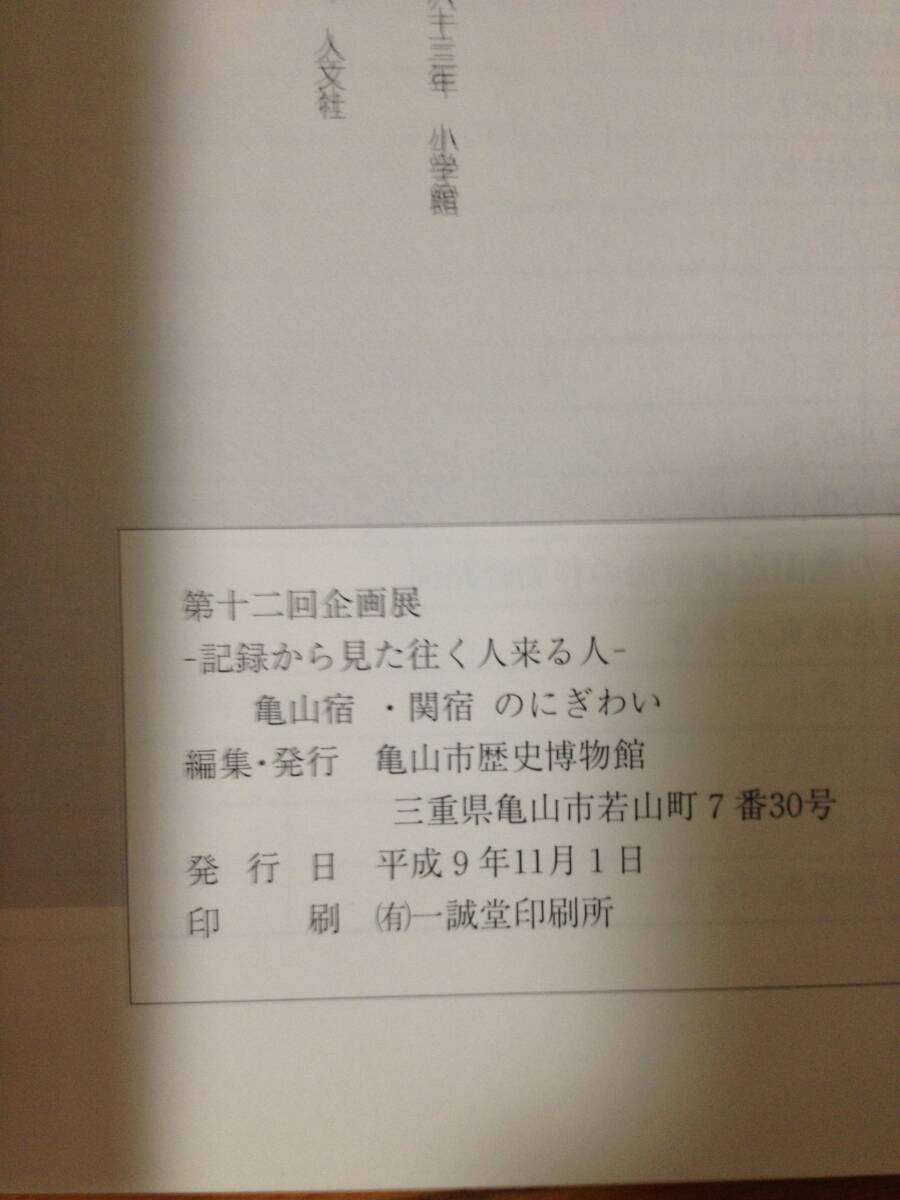 十三年　小学館
人文社
第十二回企画展
-記録から見た往く人来る人-
亀山宿 ・関宿 のにぎわい
編集・発行　亀山市歴史博物館
三重県亀山市若山町７番30号
発　行　日　平成９年11月１日
印　　　刷　㈲一誠堂印刷所